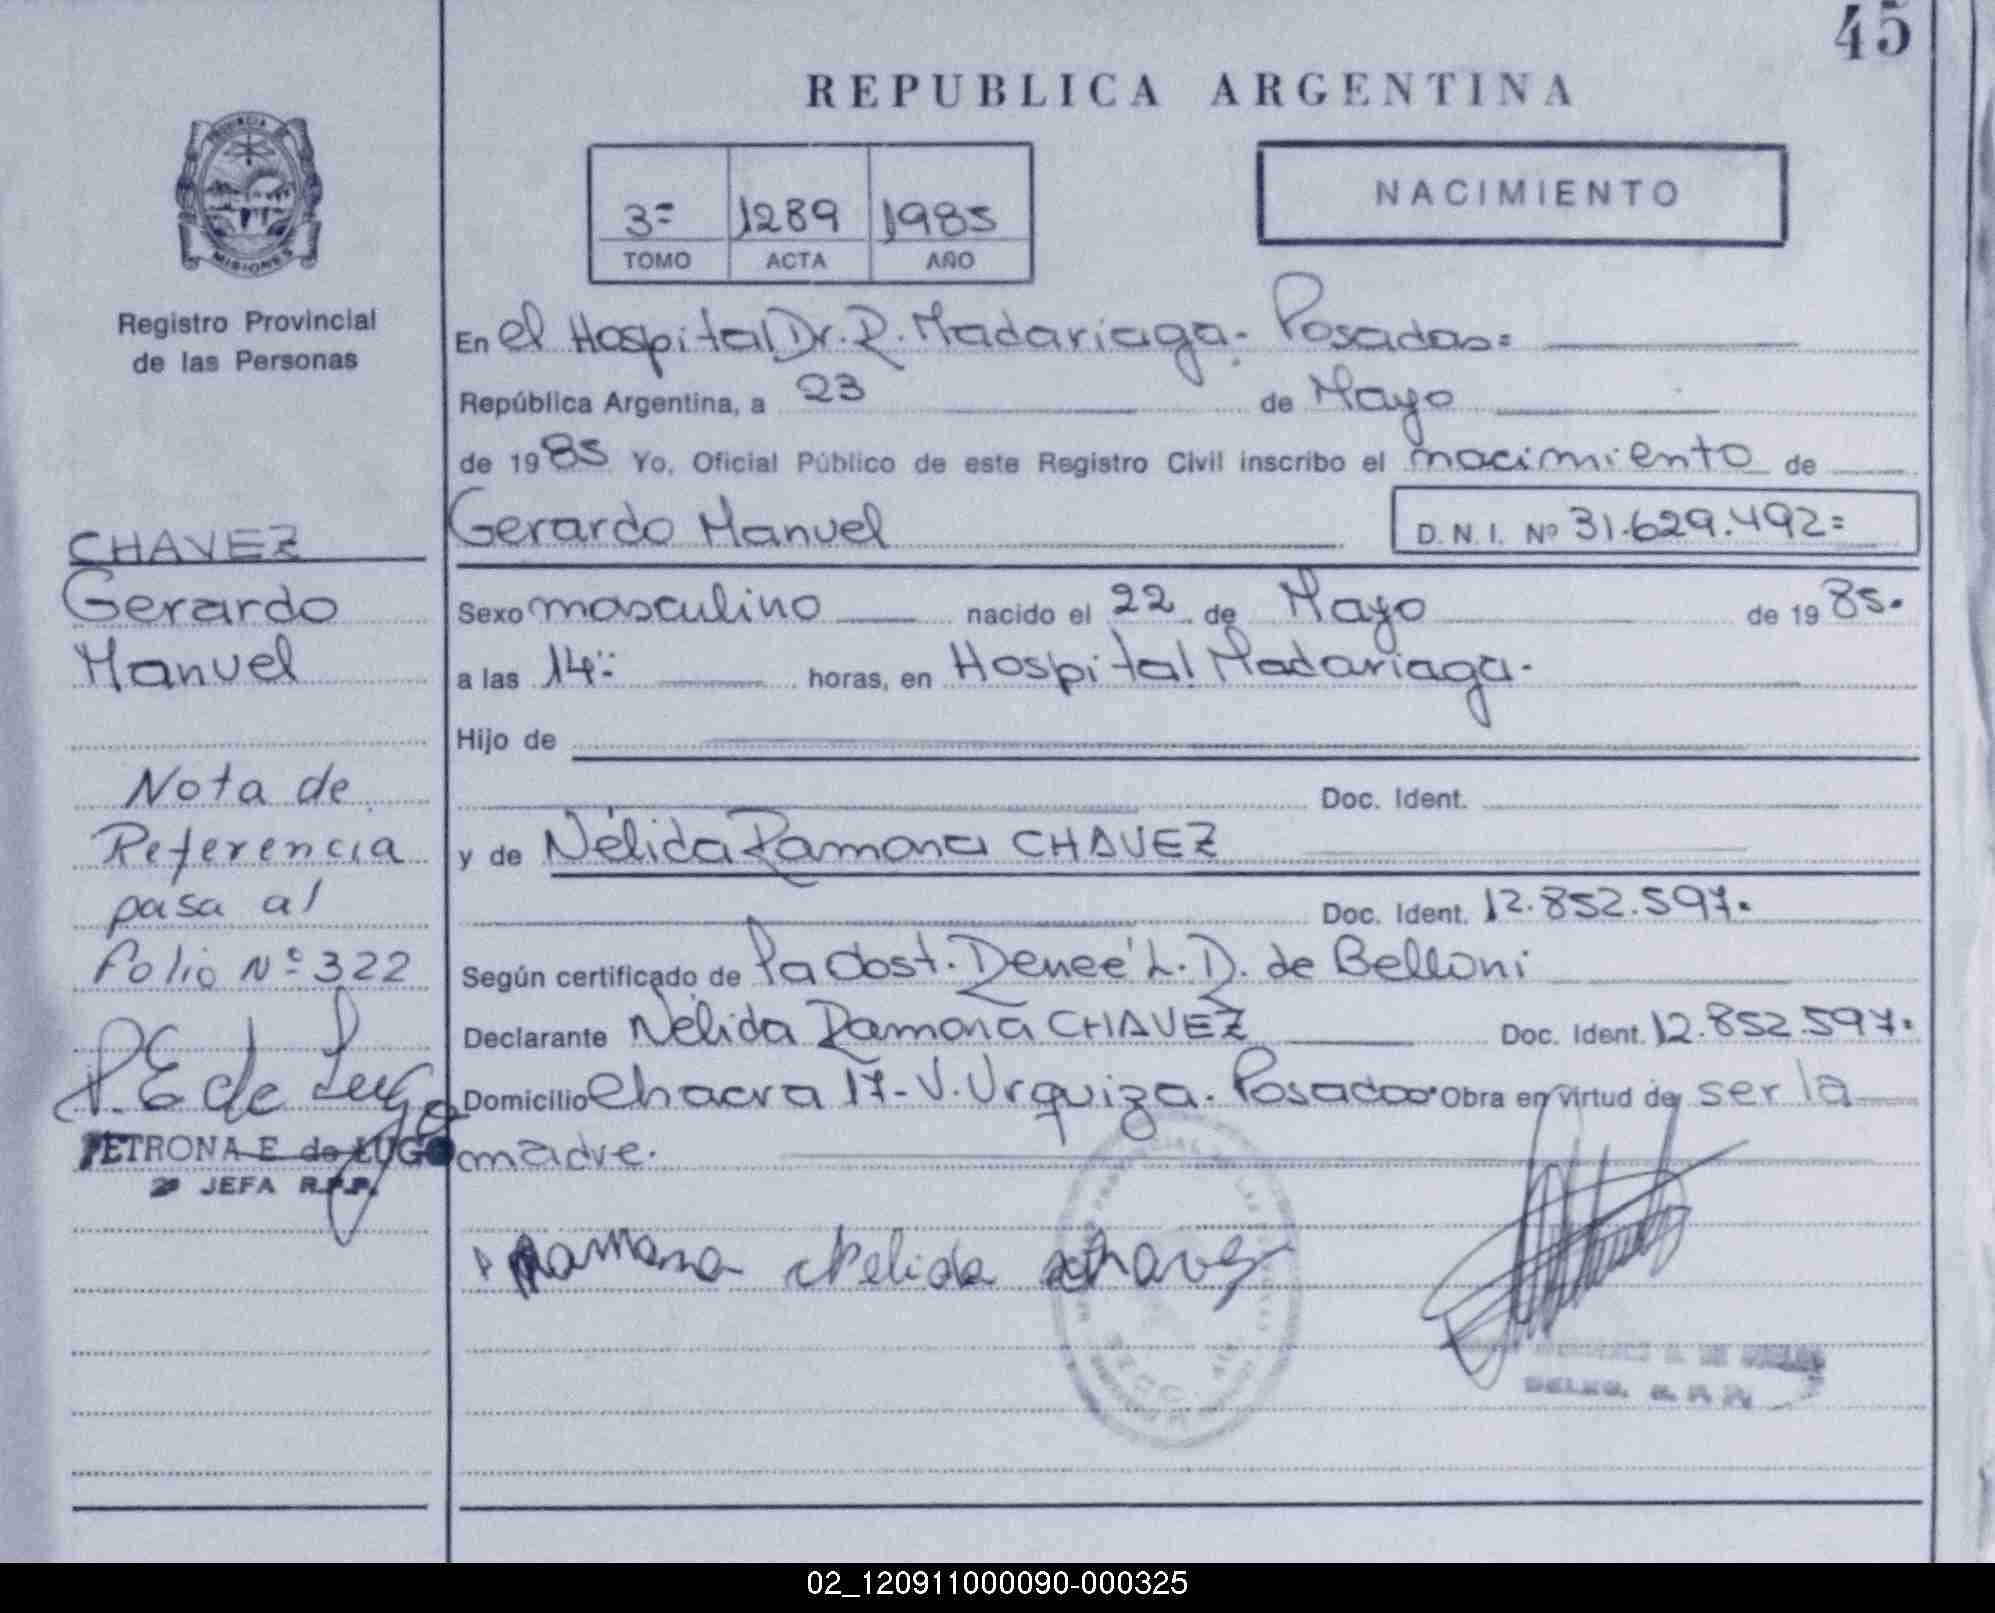 45
REPUBLICA ARGENTINA
PROVINCIA DE
MISIONES
Registro Provincial
de las Personas
3= 1289 1985
TOMO ACTA AÑO
NACIMIENTO
En el Hospital Dr. R. Madariaga. Posadas=
República Argentina, a 23 de Mayo
de 1985 Yo, Oficial Público de este Registro Civil inscribo el nacimiento de
Gerardo Manuel D.N.I. Nº 31.629.492=
Sexo masculino nacido el 22 de Mayo de 1985.
a las 14:: horas, en Hospital Madariaga.
Hijo de
Doc. Ident.
y de Nélida Ramona CHAVEZ
Doc. Ident. 12.852.597.
Según certificado de la Obst. Reneé L. D. de Belloni
Declarante Nélida Ramona CHAVEZ Doc. Ident. 12.852.597.
Domicilio Chacra 17- V. Urquiza. Posadas. Obra en virtud de ser la
madre.
Ramona Nelida Chavez
CHAVEZ
Gerardo
Manuel
Nota de
Referencia
pasa al
folio Nº 322
P. E de Lugo
PETRONA E. de LUGO
JEFA R.P.P.
02_120911000090-000325